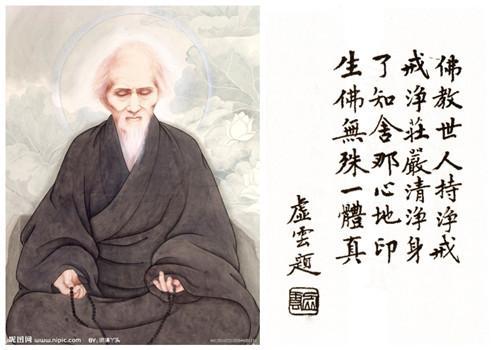 佛教世人持淨戒
戒淨莊嚴清淨身
了知舍那心地印
生佛無殊一體真
虛雲題
昵图网 www.nipic.com BY: